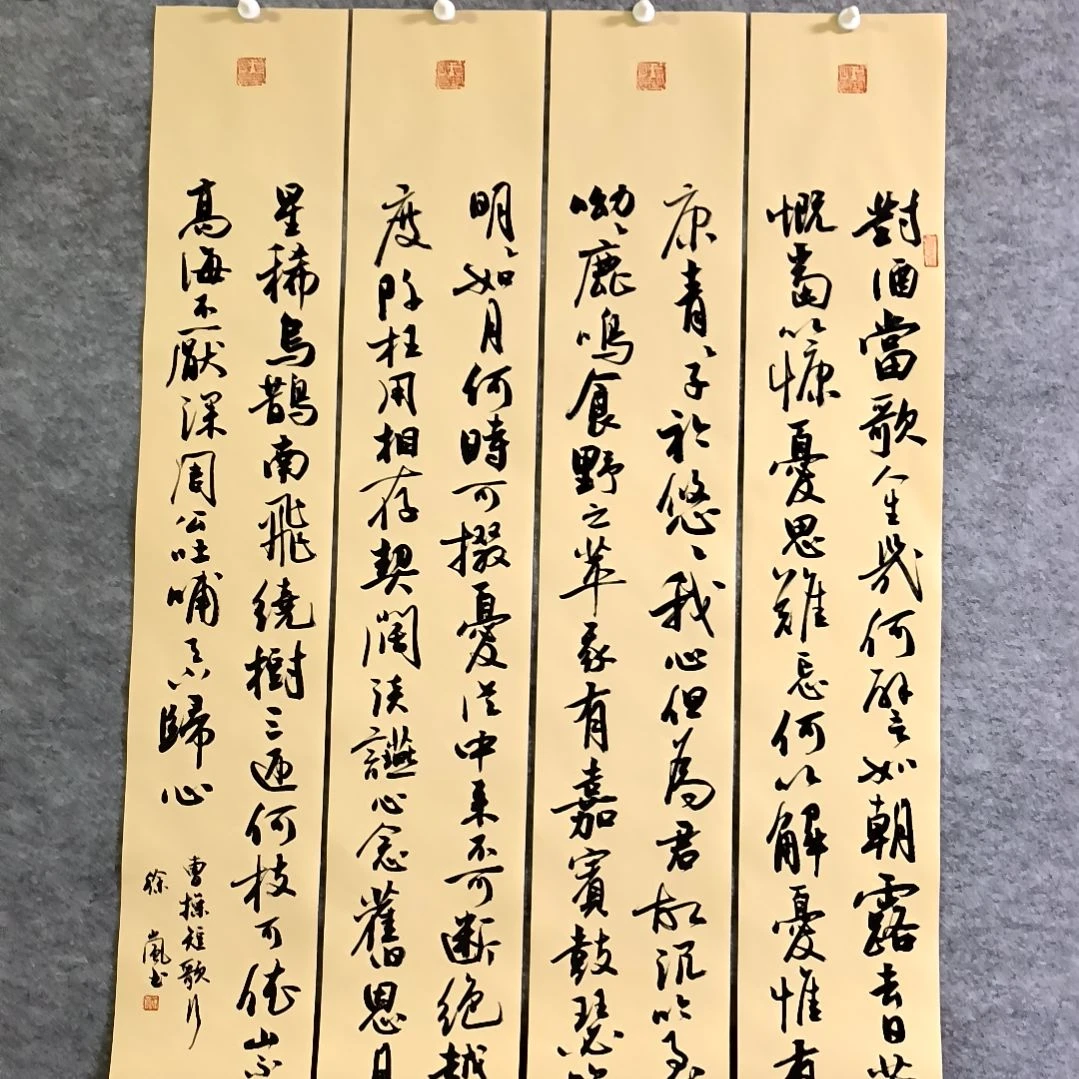 對酒當歌人生幾何譬如朝露去日苦
慨當以慷憂思難忘何以解憂惟有
康青〻子衿悠〻我心但為君故沉吟至
呦〻鹿鳴食野之苹我有嘉賓鼓瑟吹
明〻如月何時可掇憂從中來不可斷絕越
度阡枉用相存契闊談讌心念舊恩月
星稀烏鵲南飛繞樹三匝何枝可依山不
高海不厭深周公吐哺天下歸心
曹操短歌行
徐嵐書